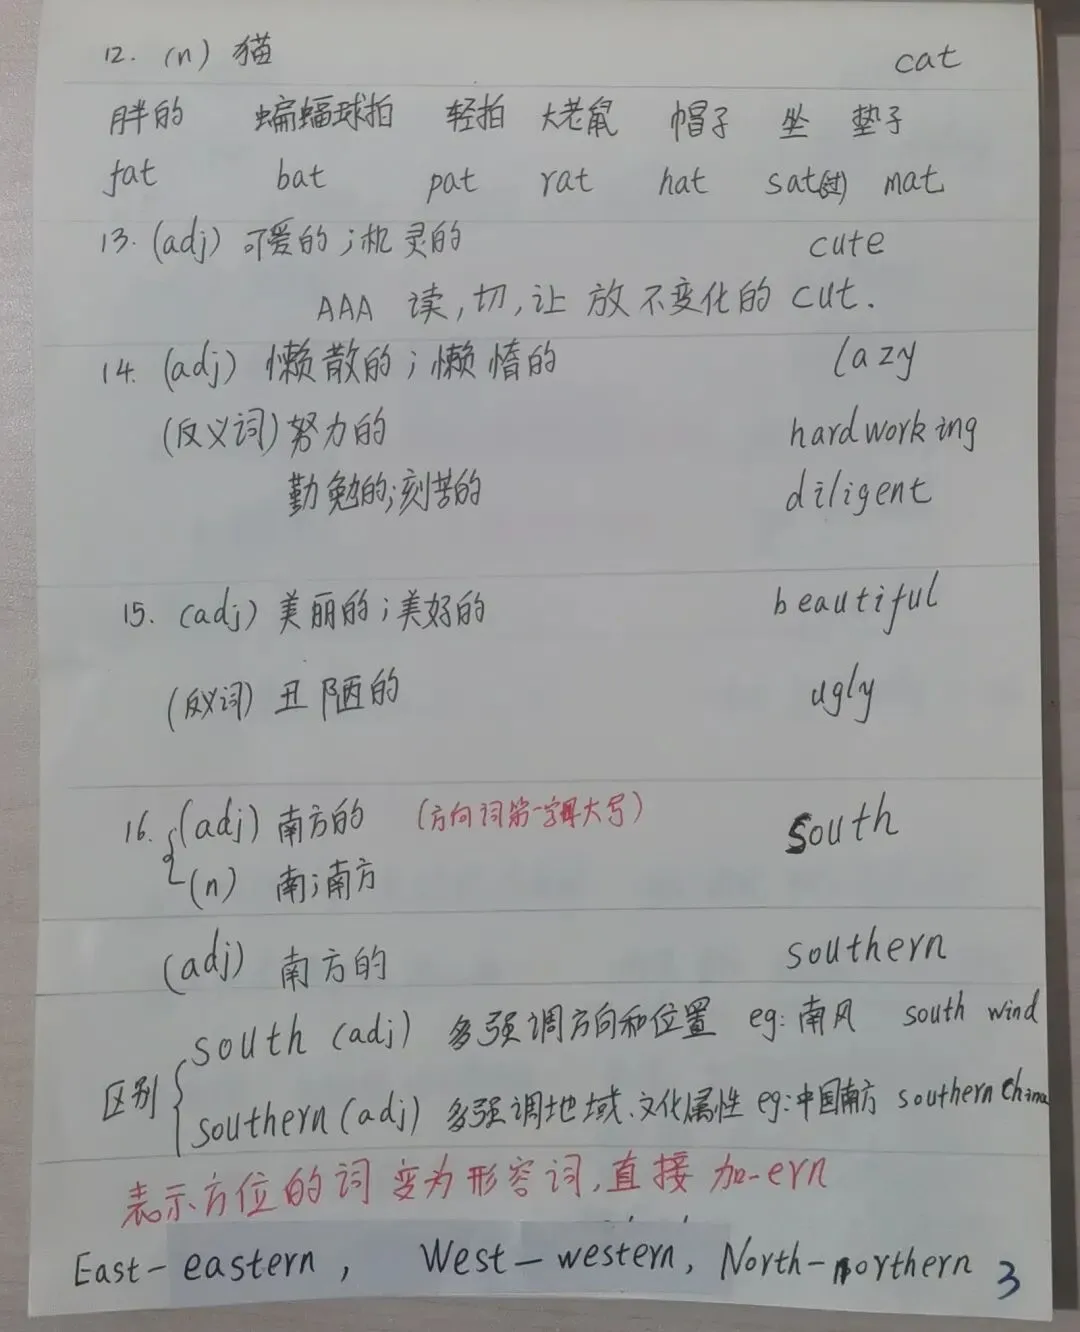 12. (n) 猫 cat
胖的 蝙蝠球拍 轻拍 大老鼠 帽子 坐 垫子
fat bat pat rat hat sat(过) mat
13. (adj) 可爱的；机灵的 cute
AAA 读,切,让 放不变化的 cut.
14. (adj) 懒散的；懒惰的 lazy
(反义词) 努力的 hardworking
勤勉的;刻苦的 diligent
15. (adj) 美丽的；美好的 beautiful
(反义词) 丑陋的 ugly
16. (adj) 南方的 (方向词第一字母大写) South
(n) 南;南方
(adj) 南方的 southern
区别 south (adj) 多强调方向和位置 eg: 南风 south wind
southern (adj) 多强调地域、文化属性 eg:中国南方 southern China
表示方位的词变为形容词,直接加-ern
East-eastern, West-western, North-northern 3